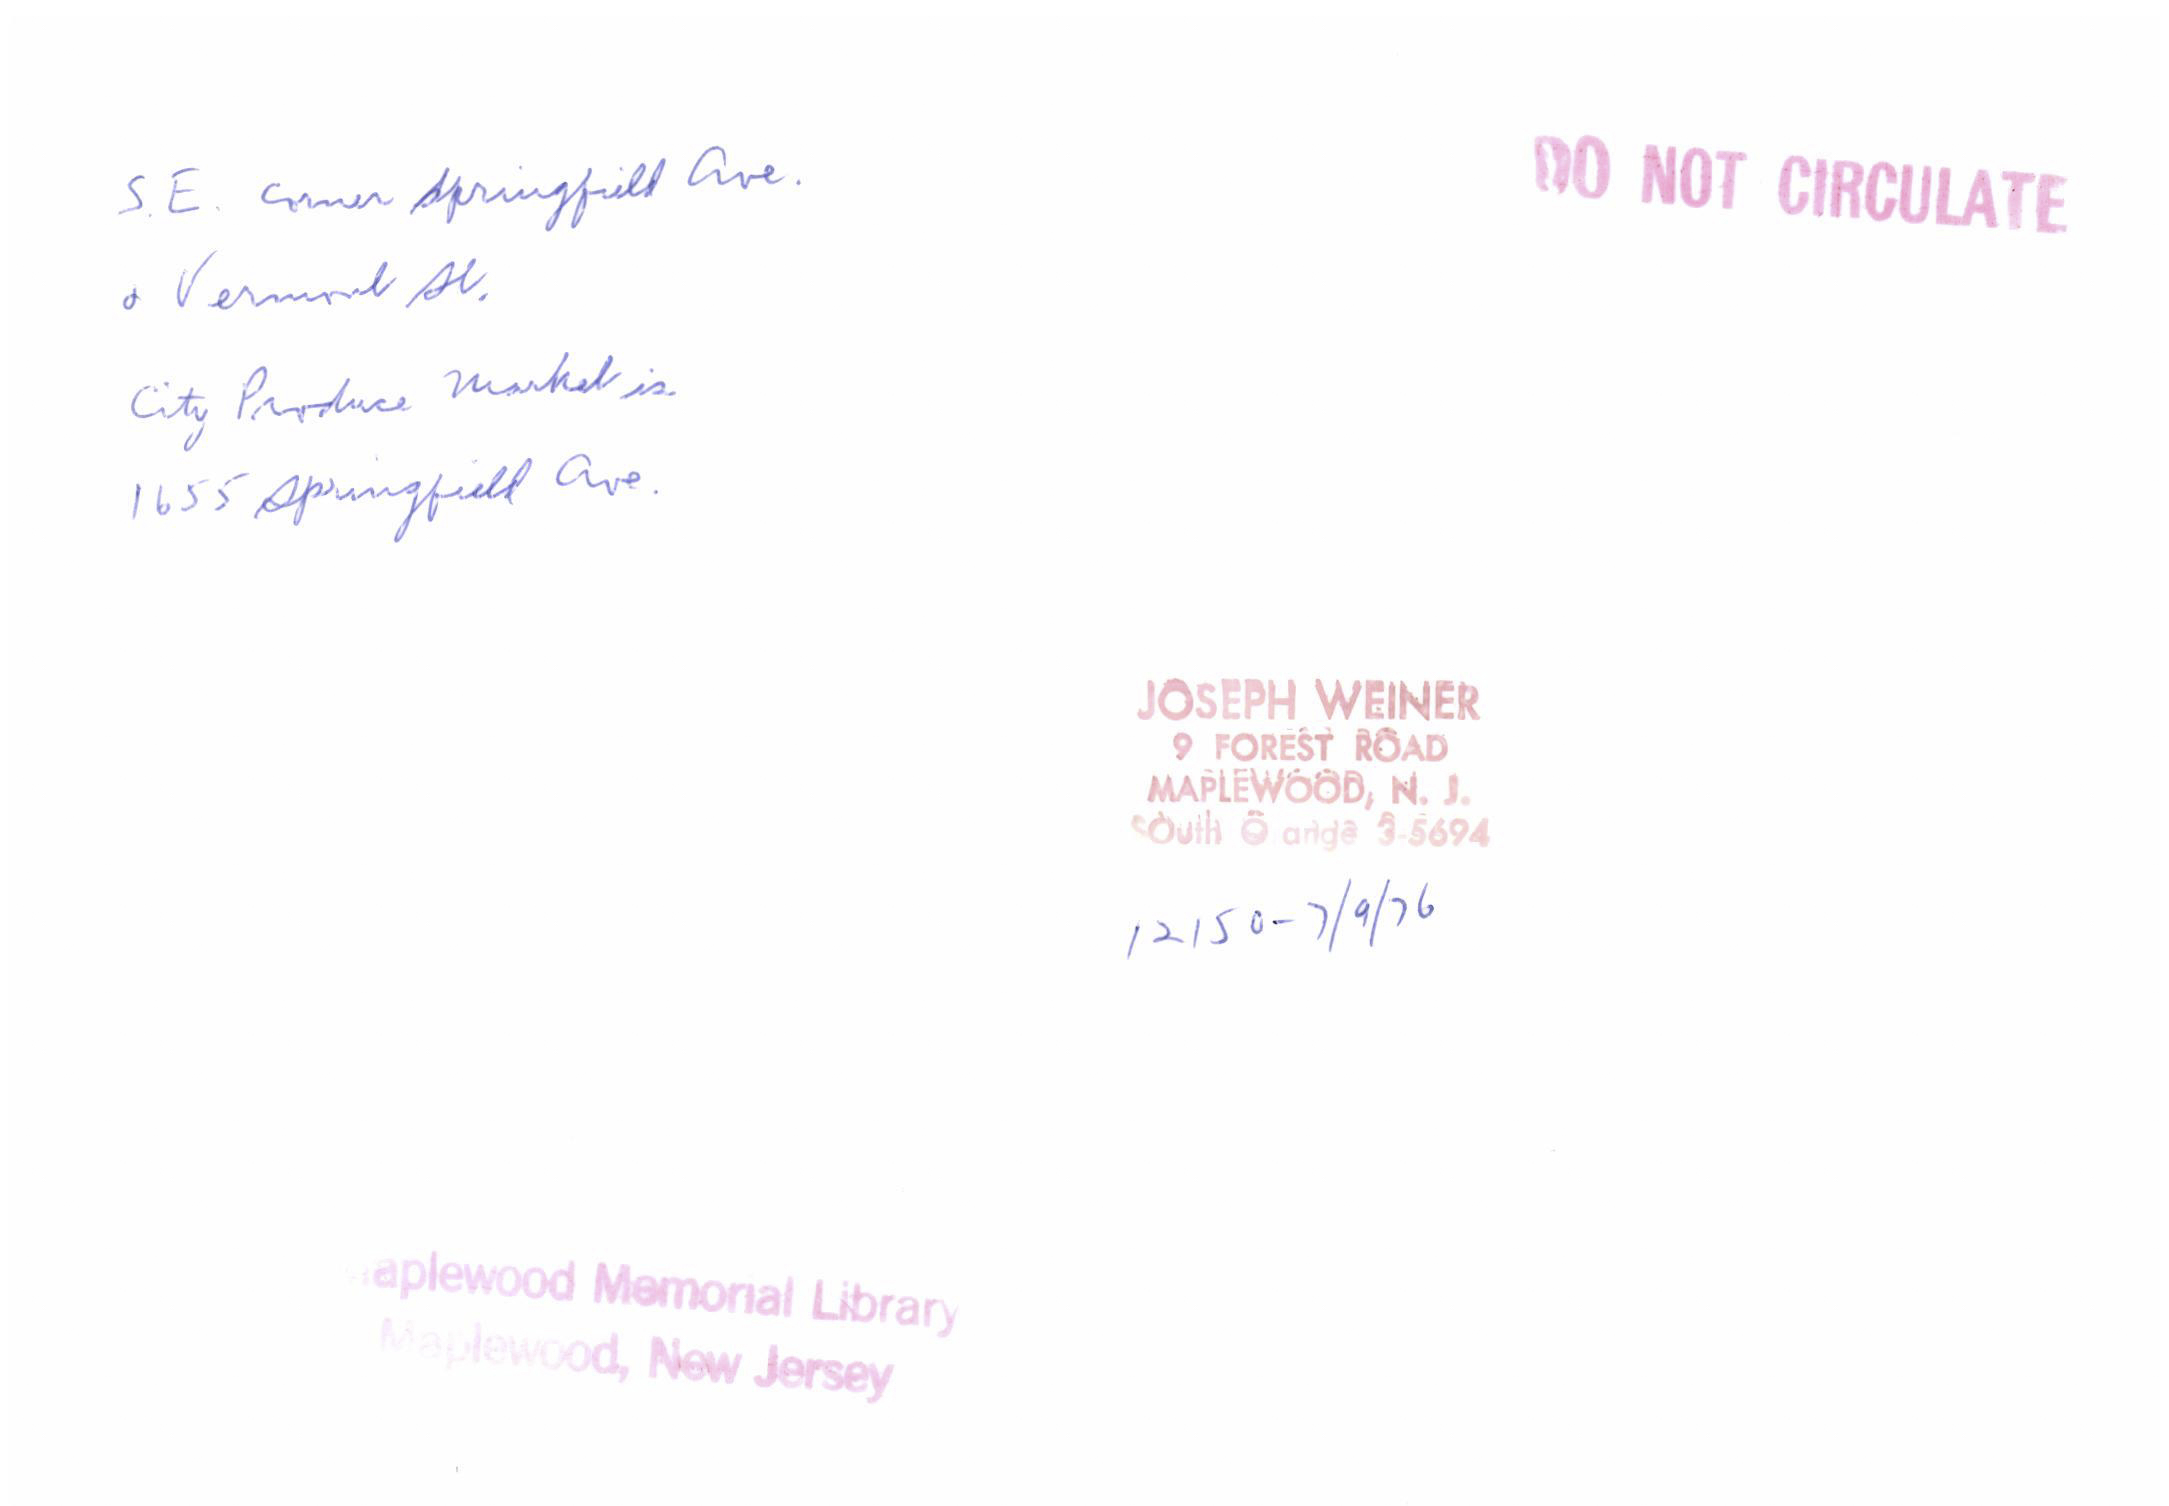 S.E. corner Springfield Ave.
& Vermont St.
City Produce Market is
1655 Springfield Ave.
DO NOT CIRCULATE
JOSEPH WEINER
9 FOREST ROAD
MAPLEWOOD, N. J.
South O ange 3-5694
12150-7/9/76
aplewood Memorial Library
Maplewood, New Jersey